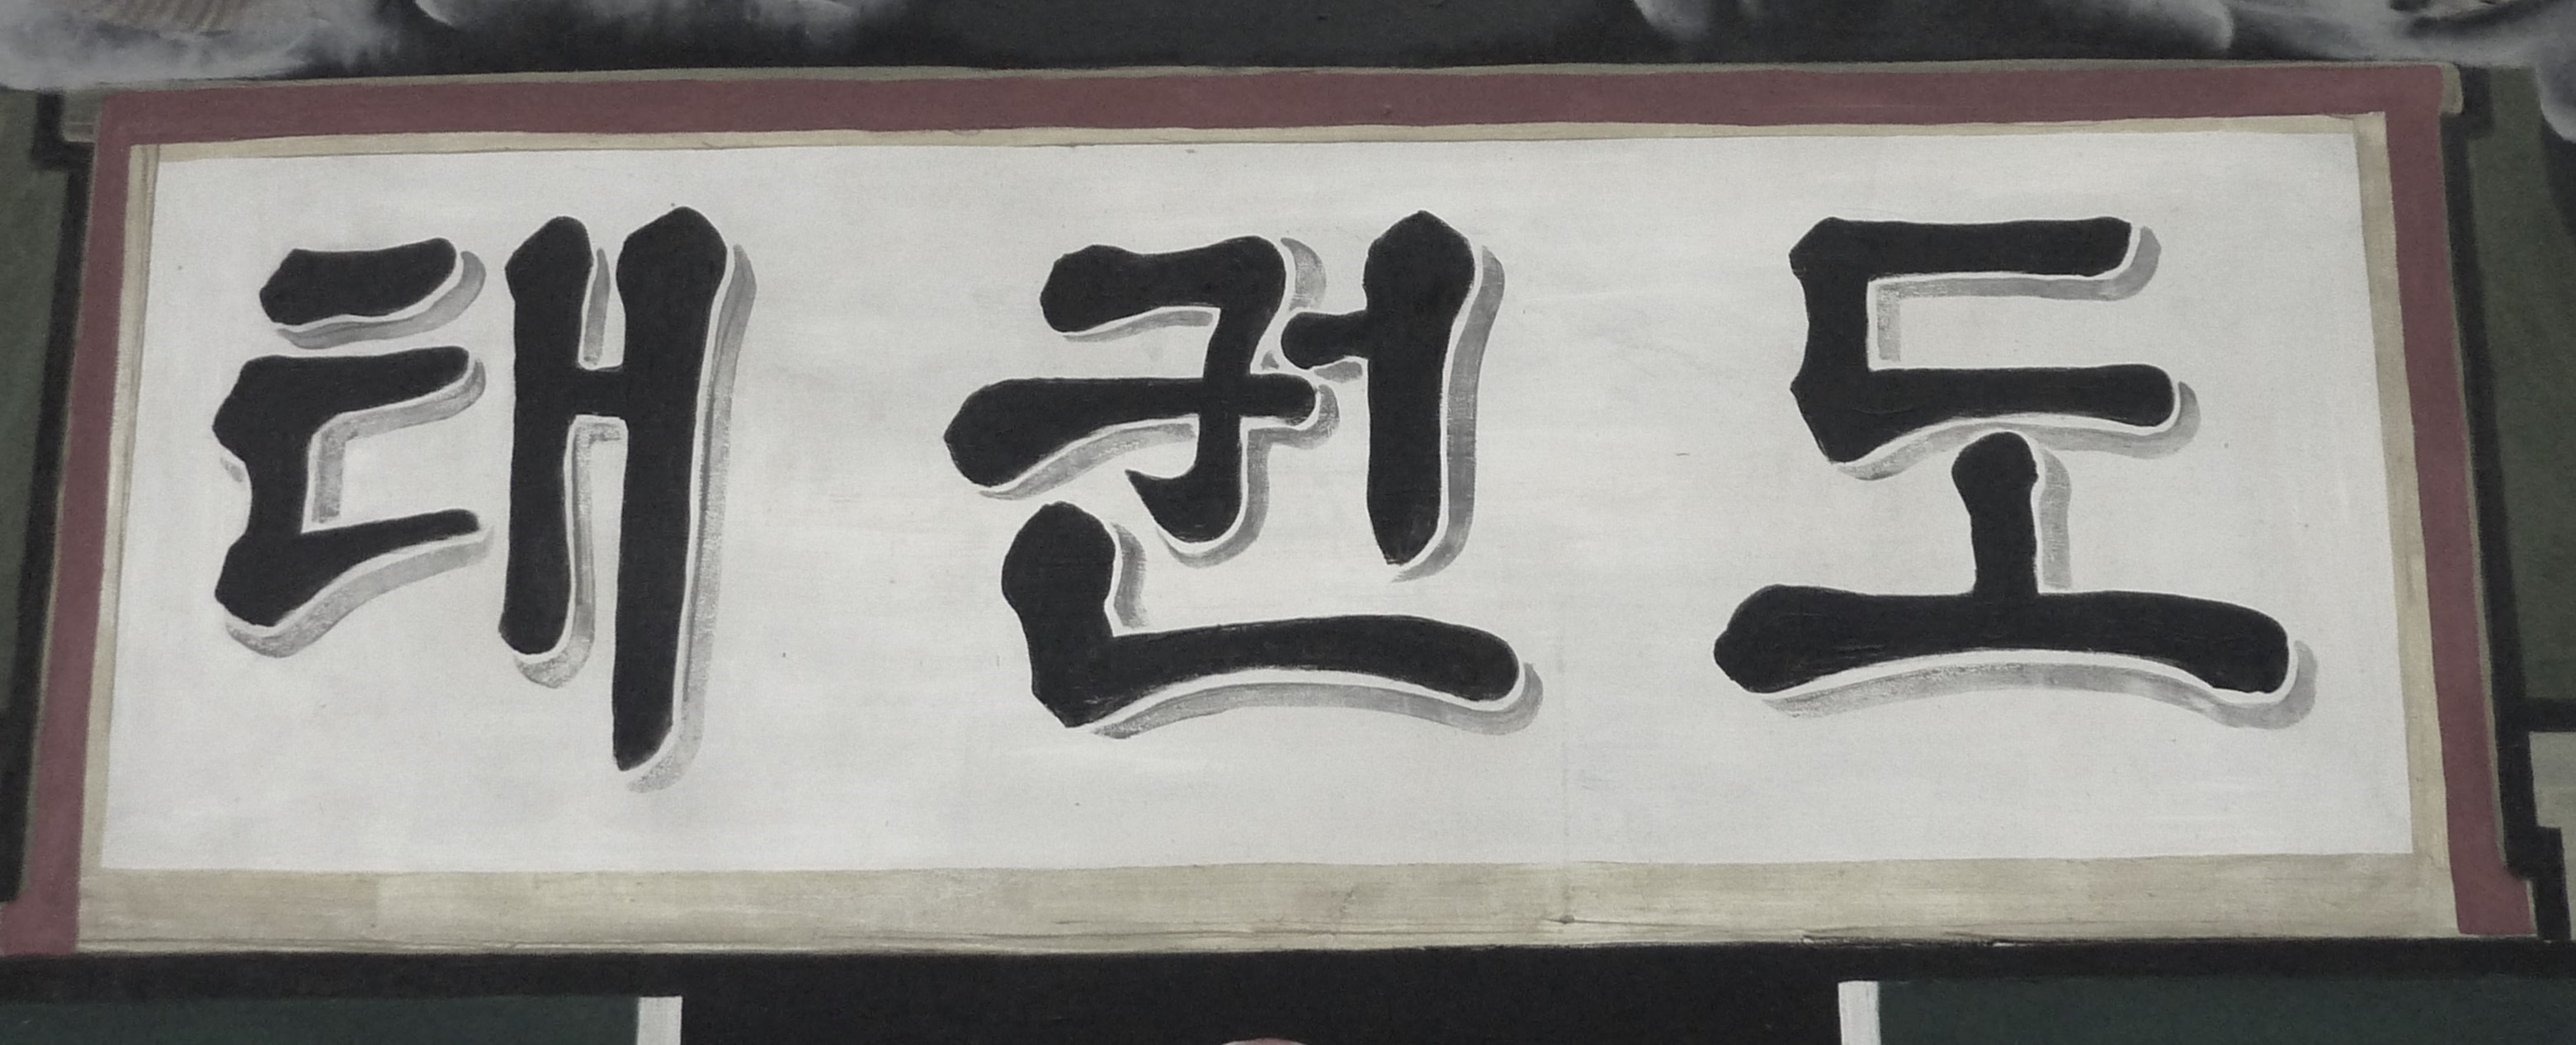 태권도